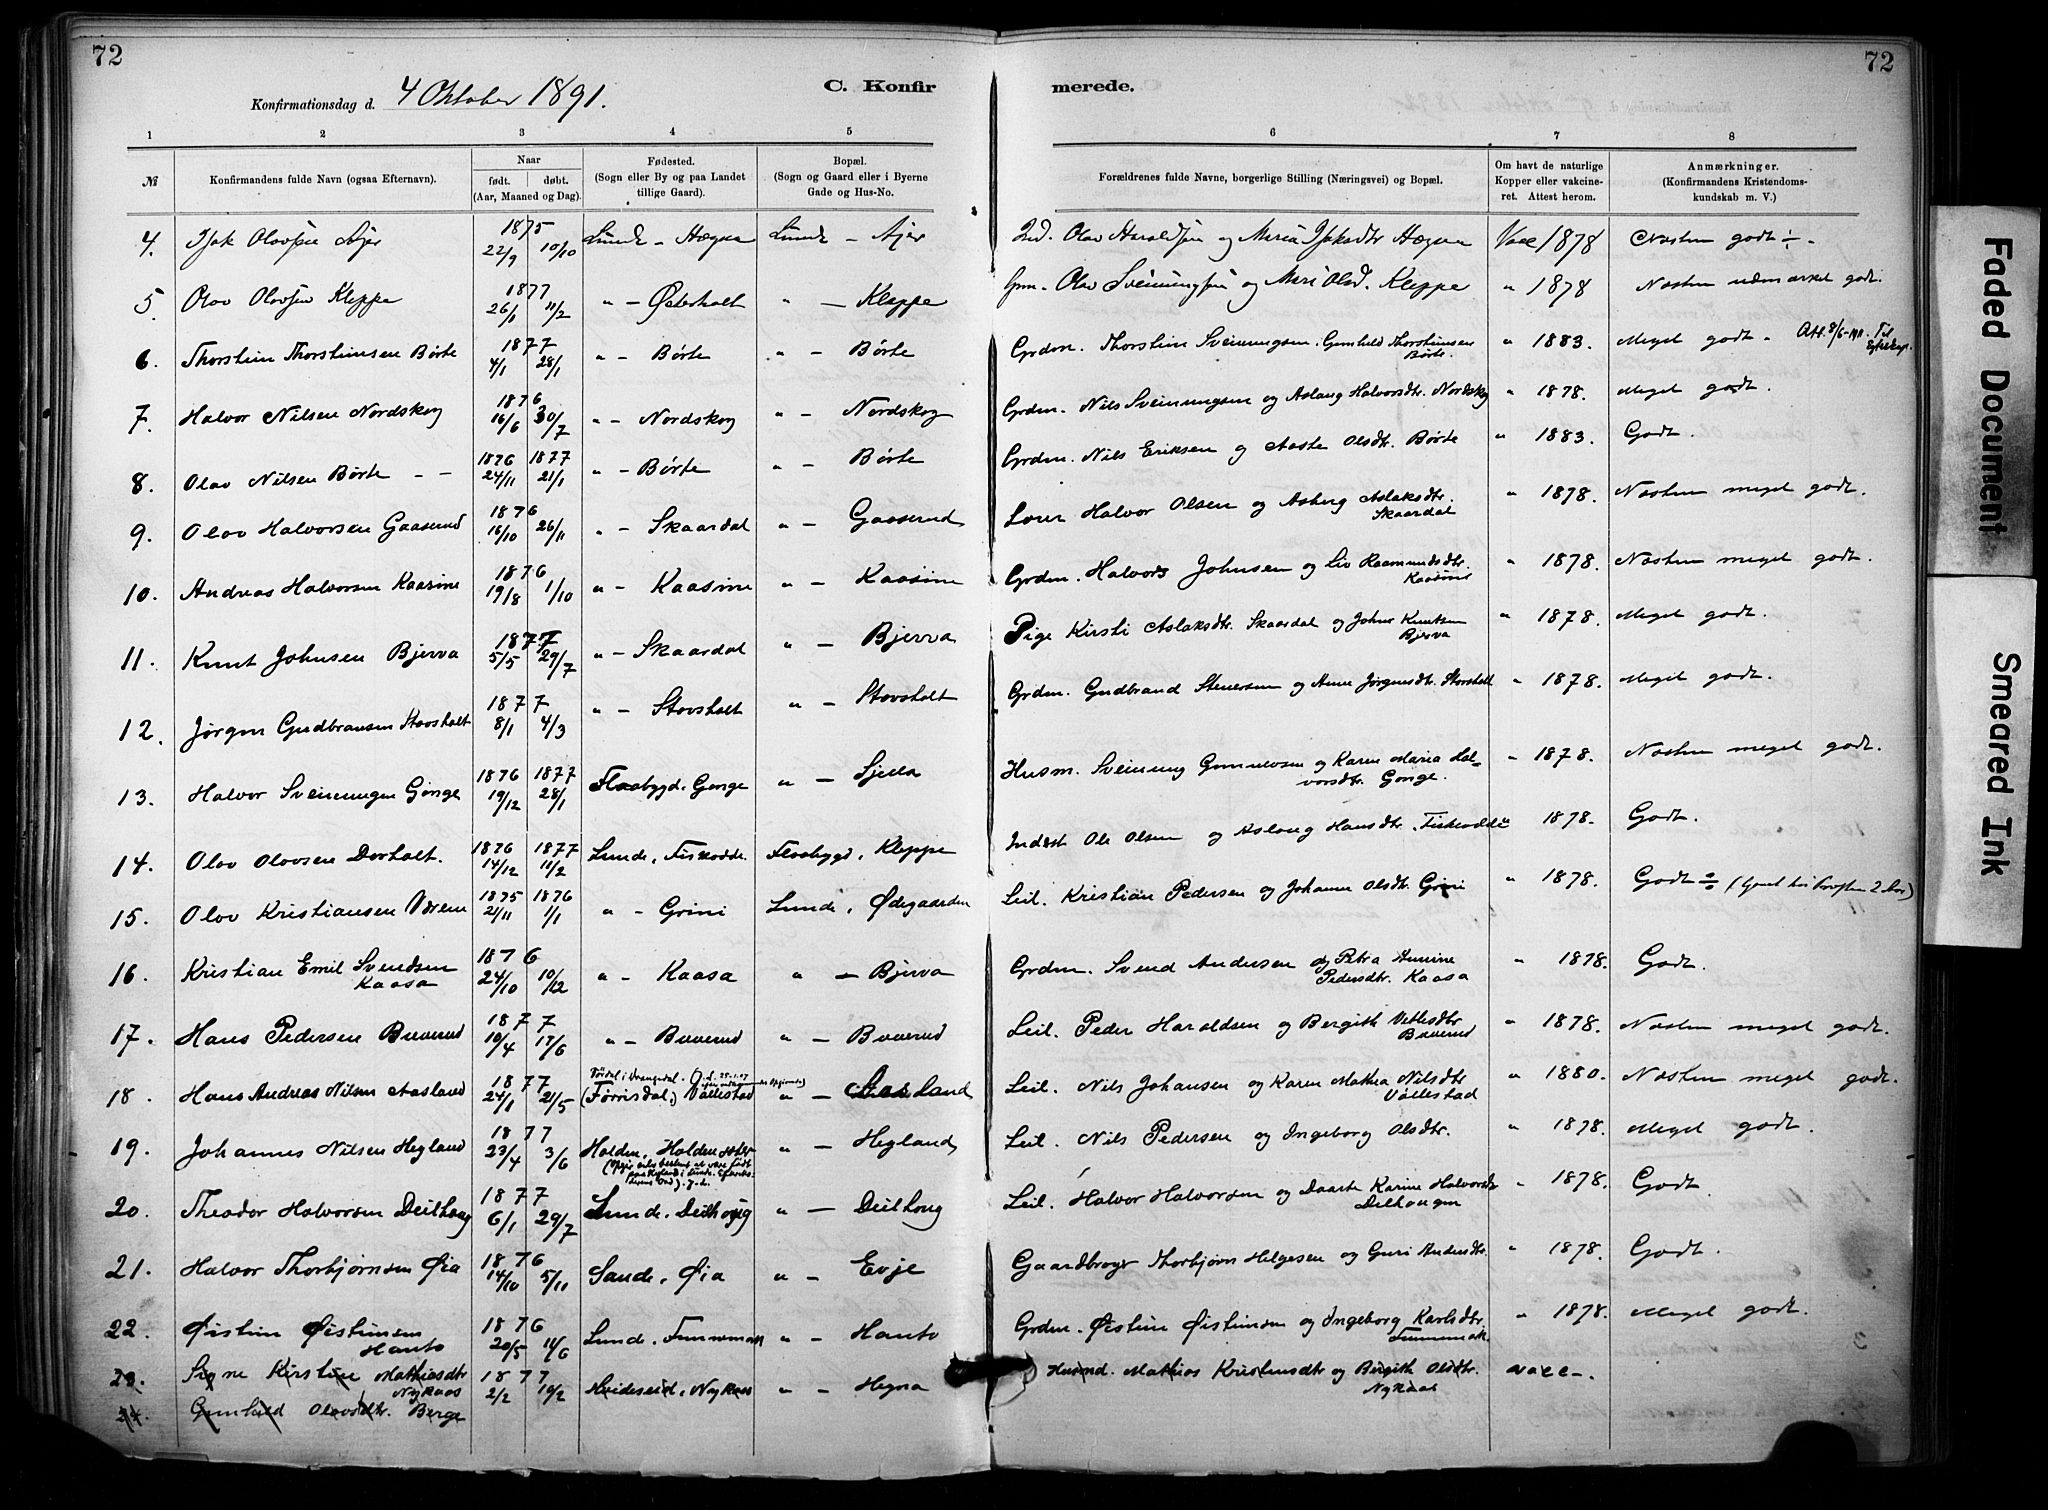 72
72
Konfirmationsdag d. 4 Oktober 1891.
C. Konfirmerede.
1 2 3 4 5 6 7 8
№
Konfirmandens fulde Navn (ogsaa Efternavn).
Naar
født. døbt.
(Aar, Maaned og Dag).
Fødested.
(Sogn eller By og paa Landet
tillige Gaard).
Bopæl.
(Sogn og Gaard eller i Byerne
Gade og Hus-No.
Forældrenes fulde Navne, borgerlige Stilling (Næringsvei) og Bopæl.
Om havt de naturlige
Kopper eller vakcine-
ret. Attest herom.
Anmærkninger.
(Konfirmandens Kristendoms-
kundskab m. V.)
4. Isak Olavsen Ajer 1875 22/9 10/10 Lunde - Hægna Lunde - Ajer Ind. Olav Haraldsen og Maria Isaksdtr Hægna Vacc 1878 Næsten godt ÷
5. Olav Olavsen Kleppe 1877 26/1 11/2 " - Østerholt " - Kleppe Gmn. Olav Sveinungsen og Mari Olsd. Kleppe " 1878 Næsten udmærket godt.
6. Thorstein Thorsteinsen Børte 1877 4/1 28/1 " - Børte " - Børte Grdm. Thorstein Sveinungsen. Gunhild Thorsteinsen Børte. " 1883. Meget godt.
7. Halvor Nilsen Nordskog 1876 16/6 30/7 " - Nordskog " - Nordskog Grdm. Nils Sveinungsen og Aslaug Halvorsdtr. Nordskog " 1878. Meget godt.
8. Olav Nilsen Børte - - 1876 24/11 1877 21/1 " - Børte " - Børte Grdm. Nils Eriksen og Aaste Olsdtr. Børte " 1883. Godt.
9. Olav Halvorsen Gaaserud 1876 16/10 26/11 " - Skaardal " - Gaaserud Halvor Olsen og Asberg Aslaksdtr. Skaardal " 1878. Næsten meget godt.
10. Andreas Halvorsen Kaasine 1876 19/8 1/10 " - Kaasine " - Kaasine Grdm. Halvor Johnsen og Liv Raamundsdtr. Kaasine " 1878. Næsten meget godt.
11. Knut Johnsen Bjerva 1877 5/5 29/7 " - Skaardal " - Bjerva Pige Kirsti Aslaksdtr. Skaardal og John Knutsen Bjerva " 1878. Meget godt.
12. Jørgen Gudbransen Stavsholt 1877 8/1 4/3 " - Stovsholt " - Stovsholt Grdm. Gudbrand Stenersen og Anne Jørgensdtr. Storsholt " 1878. Meget godt.
13. Halvor Sveinungen Gjonge 1876 19/12 1877 28/1 Flaabygd. Gonge " - Sjella Husm. Sveinung Gunnulvsen og Karen Maria Halvorsdtr. Gonge. " 1878. Næsten meget godt.
14. Olav Olavsen Dorholt. 1876 14/12 1877 11/2 Lunde, Fiskodde. Flaabygd, Kleppe Inderst Ole Olsen og Aslaug Hansdtr. Fiskodde 1878. Godt.
15. Olav Kristiansen Værene 1875 2/11 1876 1/1 " - Grini Lunde, Ødegaarden Leil. Kristian Pedersen og Johanne Olsdtr. Grini " 1878. Godt ÷
16. Kristian Emil Svendsen Kaasa 1876 24/10 10/12 " - Kaasa " - Bjerva Grdm. Svend Andersen og Petra Annine Pedersdtr. Kaasa " 1878. Godt.
17. Hans Pedersen Buverud 1877 10/4 17/6 " - Buverud " - Buverud Leil. Peder Haraldsen og Bergith Vetlesdtr Buverud " 1878. Næsten meget godt.
18. Hans Andreas Nilsen Aasland 1877 24/1 21/5 (Førrisdal.) Vallestad " - Aasland Leil. Nils Johansen og Karen Mathea Nilsdtr Vallestad " 1880. Næsten meget godt.
19. Johannes Nilsen Hegland 1877 23/4 3/6 Holden, Holden " - Hegland Leil. Nils Pedersen og Ingeborg Olsdtr. " 1878. Meget godt.
20. Theodor Halvorsen Deilhoug 1877 6/1 29/7 Lunde. Deilhoug " - Deilhoug Leil. Halvor Halvorsen og Daarte Karine Halvorsdtr Deilhougen " 1878. Godt.
21. Halvor Thorbjørnsen Øia 1876 14/10 5/11 Sande, Øia " - Evje Gaardbruger Thorbjørn Helgesen og Guri Andersdtr. " 1878. Godt.
22. Øistein Øisteinsen Hanto 1876 20/5 11/6 Lunde. " - Hanto Grdm. Øistein Øisteinsen og Ingeborg Karlsdtr. " 1878. Meget godt.
23. Signe Kirstine Mathiasdtr Nykaas 1877 2/2 19/2 Hvideseid, Nykaas " - Hegna Husmd. Mathias Kristensdtr og Bergith Olsdtr. Nykaas vacc -.
24. Gunhild Olavsdtr. Berge
Faded Document
Smeared Ink